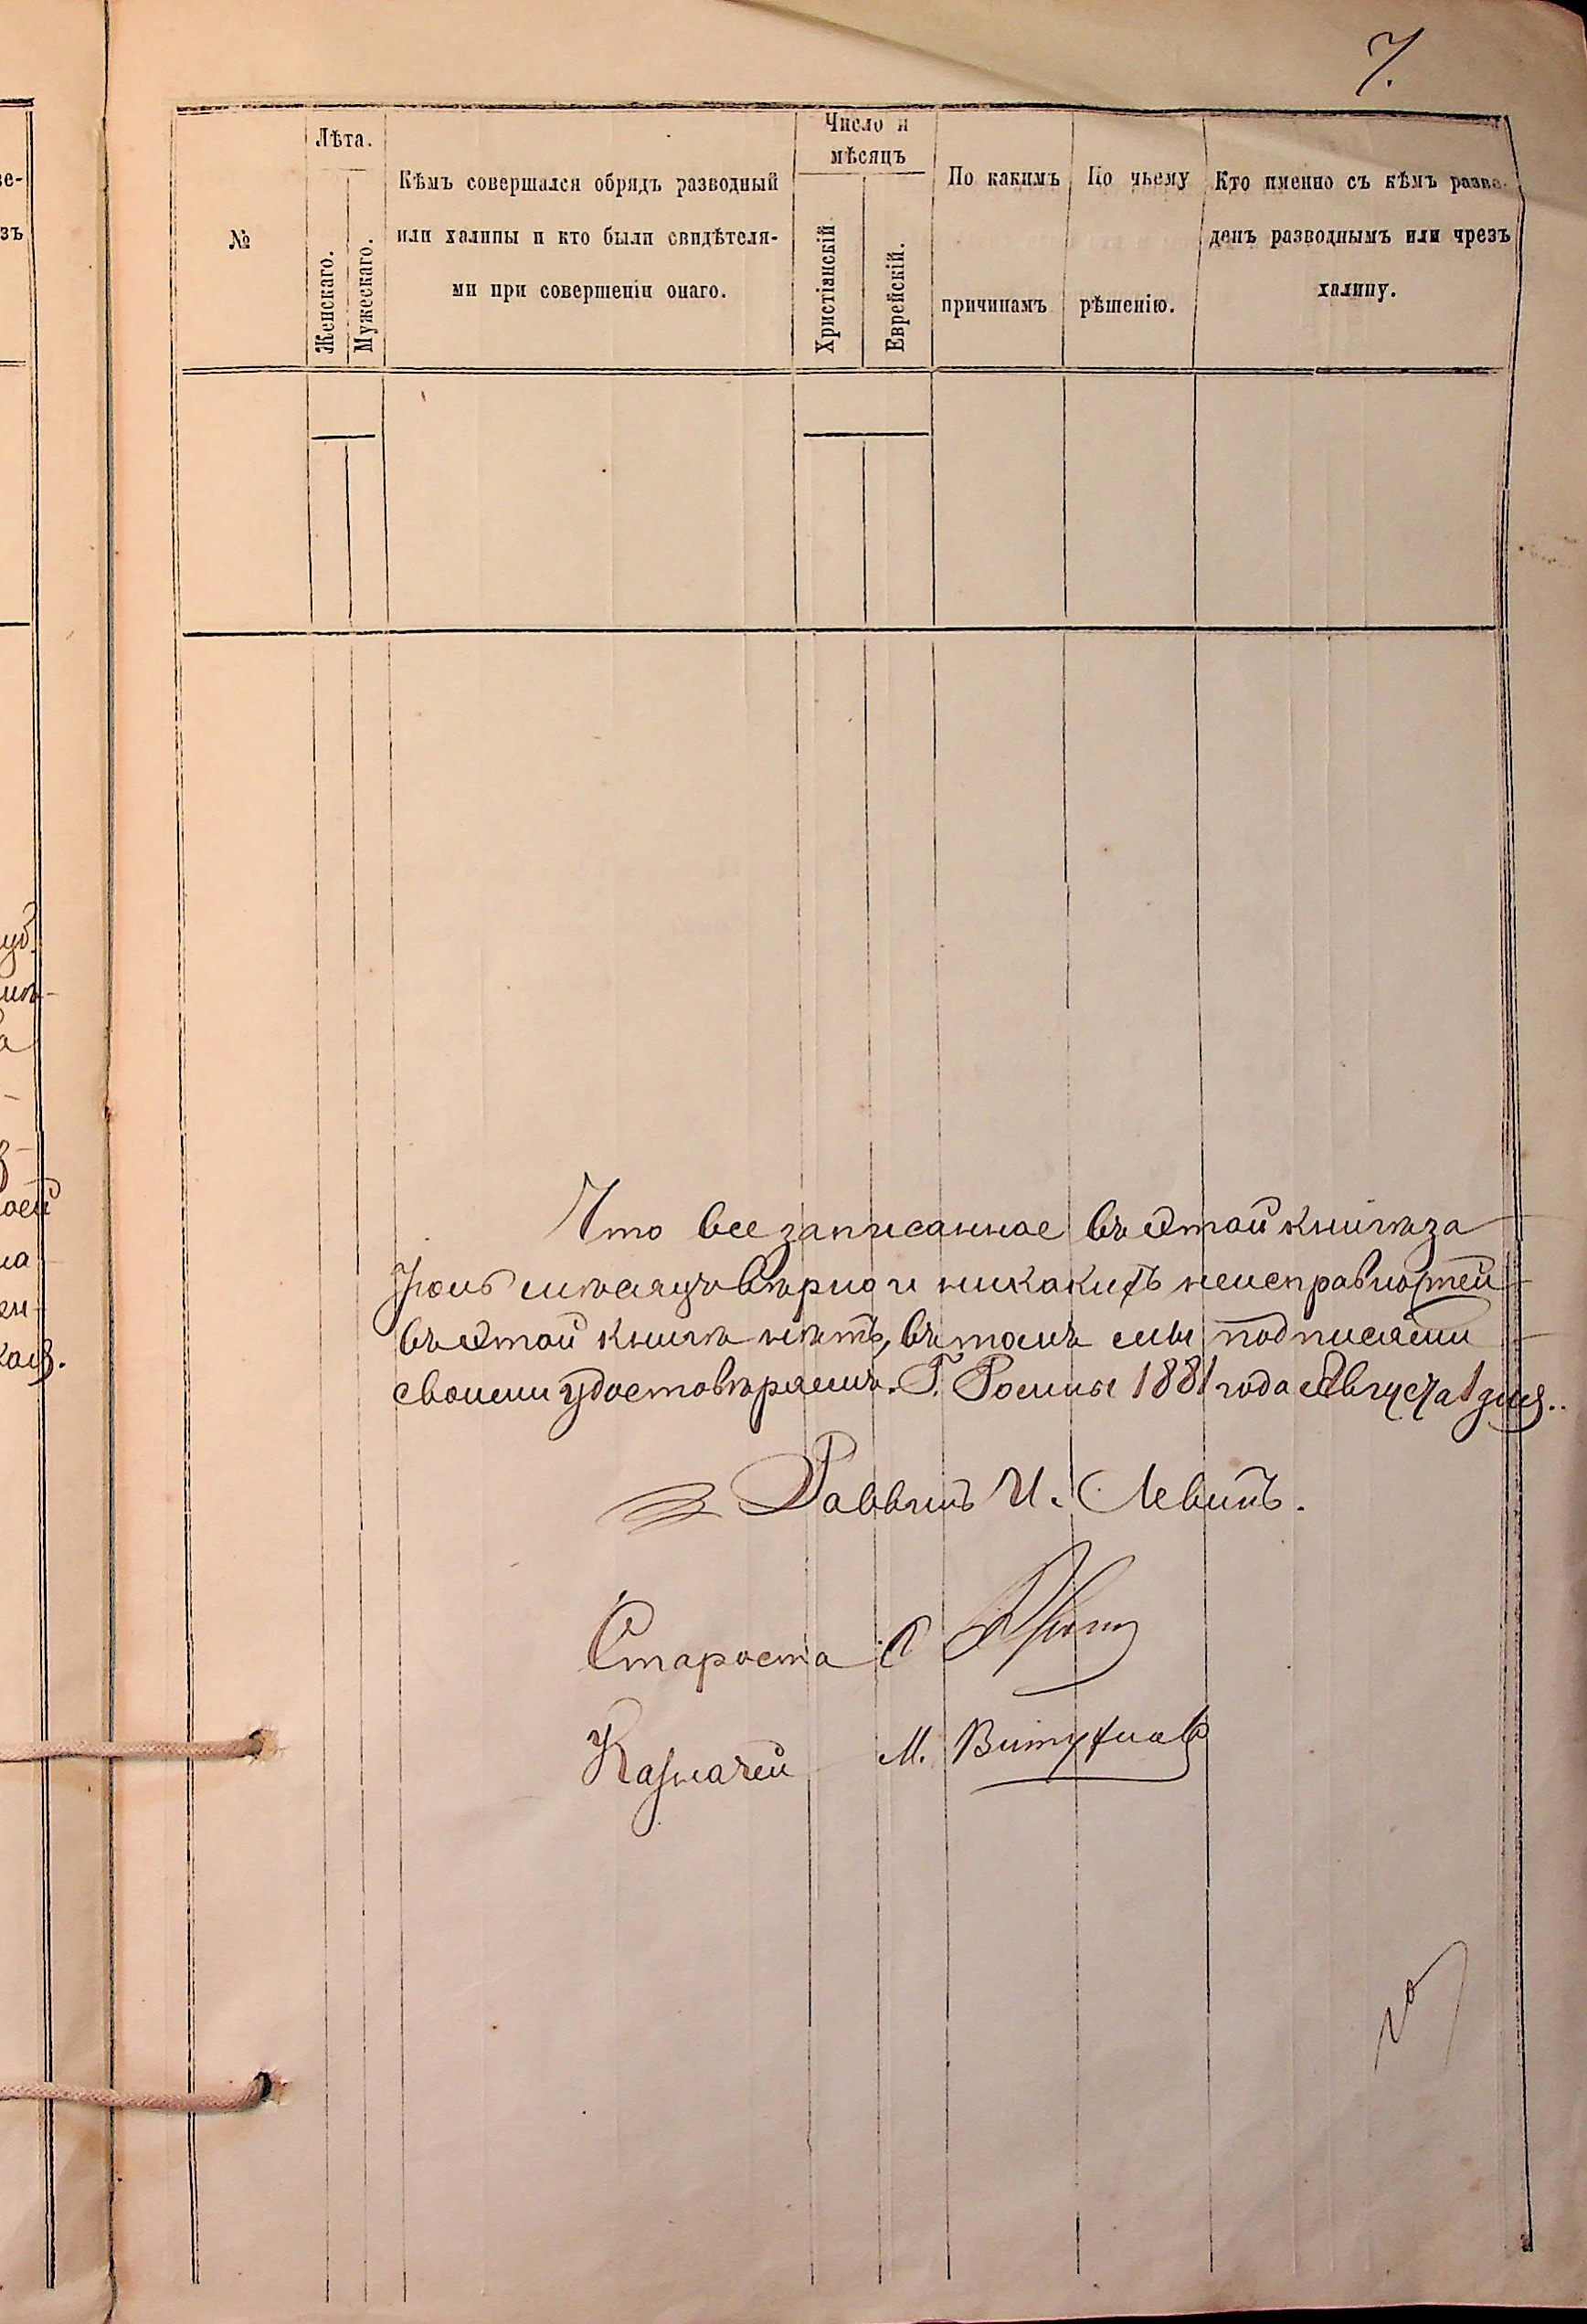 7.
Лѣта.
Число и
мѣсяцъ
№
Женскаго.
Мужескаго.
Кѣмъ совершался обрядъ разводный
или халицы и кто были свидѣтеля-
ми при совершеніи онаго.
Христіанскій
Еврейскій.
По какимъ
причинамъ
По чьему
рѣшенію.
Кто именно съ кѣмъ разве-
денъ разводнымъ или чрезъ
халицу.
Что все записанное въ этой книгѣ за
мѣсяцъ вѣрно и никакихъ неисправностей
въ этой книгѣ нѣтъ, въ томъ мы подписями
своими удостовѣряемъ. Г. Ромны 1881 года Августа 1 дня..
Раввинъ И. Левинъ.
Староста
Казначей М.